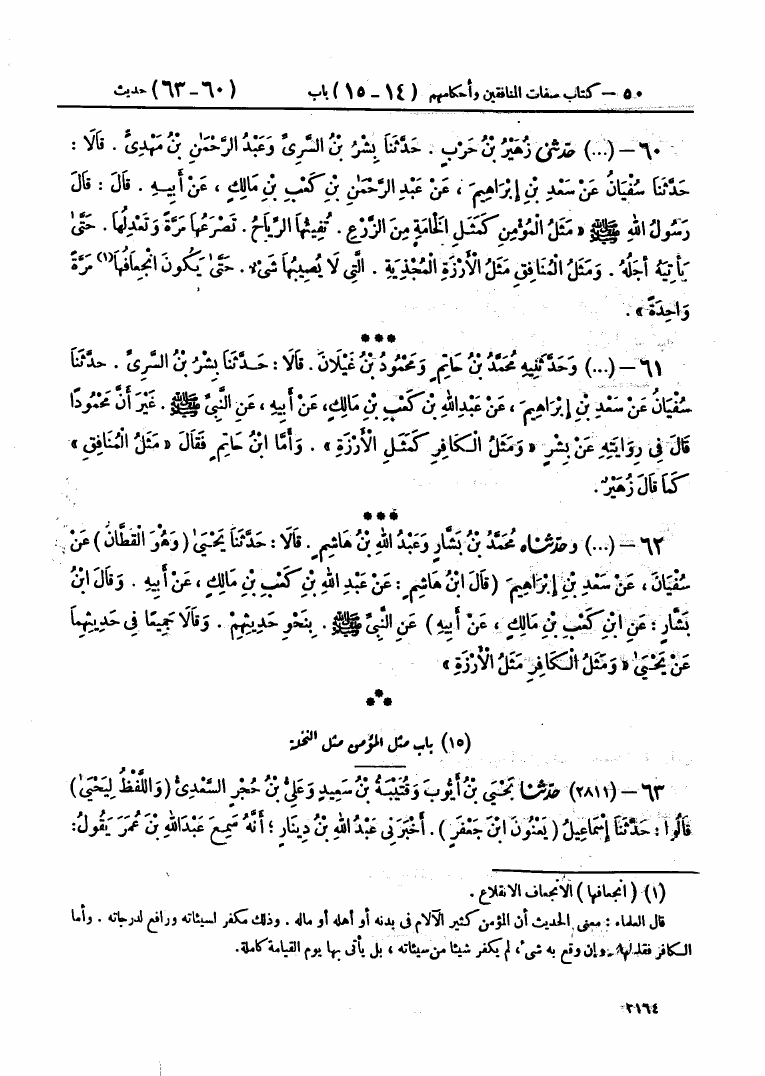 ٥٠ – كتاب صفات المنافقين وأحكامهم (١٤ – ١٥) باب (٦٠ – ٦٣) حديث
٦٠ – (...) حَدَّثَنِى زُهَيْرُ بْنُ حَرْبٍ . حَدَّثَنَا بِشْرُ بْنُ السَّرِىِّ وَعَبْدُ الرَّحْمَٰنِ بْنُ مَهْدِىٍّ . قَالَا :
حَدَّثَنَا سُفْيَانُ عَنْ سَعْدِ بْنِ إِبْرَاهِيمَ ، عَنْ عَبْدِ الرَّحْمَٰنِ بْنِ كَعْبِ بْنِ مَالِكٍ ، عَنْ أَبِيهِ . قَالَ : قَالَ
رَسُولُ اللهِ ﷺ « مَثَلُ الْمُؤْمِنِ كَمَثَلِ الْخَامَةِ مِنَ الزَّرْعِ . تُفِيئُهَا الرِّيَاحُ . تَصْرَعُهَا مَرَّةً وَتَعْدِلُهَا . حَتَّىٰ
يَأْتِيَهُ أَجَلُهُ . وَمَثَلُ الْمُنَافِقِ مَثَلُ الْأَرْزَةِ الْمُجْذِيَةِ . الَّتِى لَا يُصِيبُهَا شَىْءٌ . حَتَّىٰ يَكُونَ انْجِعَافُهَا(١) مَرَّةً
وَاحِدَةً » .
***
٦١ – (...) وَحَدَّثَنِيهِ مُحَمَّدُ بْنُ حَاتِمٍ وَمَحْمُودُ بْنُ غَيْلَانَ . قَالَا : حَدَّثَنَا بِشْرُ بْنُ السَّرِىِّ . حَدَّثَنَا
سُفْيَانُ عَنْ سَعْدِ بْنِ إِبْرَاهِيمَ ، عَنْ عَبْدِاللهِ بْنِ كَعْبِ بْنِ مَالِكٍ، عَنْ أَبِيهِ ، عَنِ النَّبِىِّ ﷺ . غَيْرَ أَنَّ مَحْمُودًا
قَالَ فِى رِوَايَتِهِ عَنْ بِشْرٍ « وَمَثَلُ الْكَافِرِ كَمَثَلِ الْأَرْزَةِ » . وَأَمَّا ابْنُ حَاتِمٍ فَقَالَ « مَثَلُ الْمُنَافِقِ »
كَمَا قَالَ زُهَيْرٌ .
***
٦٢ – (...) وحَدَّثَنَاه مُحَمَّدُ بْنُ بَشَّارٍ وَعَبْدُ اللهِ بْنُ هَاشِمٍ . قَالَا : حَدَّثَنَا يَحْيَىٰ (وَهُوَ الْقَطَّانُ) عَنْ
سُفْيَانَ ، عَنْ سَعْدِ بْنِ إِبْرَاهِيمَ (قَالَ ابْنُ هَاشِمٍ : عَنْ عَبْدِ اللهِ بْنِ كَعْبِ بْنِ مَالِكٍ ، عَنْ أَبِيهِ . وَقَالَ ابْنُ
بَشَّارٍ : عَنِ ابْنِ كَعْبِ بْنِ مَالِكٍ ، عَنْ أَبِيهِ ) عَنِ النَّبِىِّ ﷺ . بِنَحْوِ حَدِيثِهِمْ . وَقَالَا جَمِيعًا فِى حَدِيثِهِمَا
عَنْ يَحْيَىٰ « وَمَثَلُ الْكَافِرِ مَثَلُ الْأَرْزَةِ »
***
(١٥) باب مثل المؤمن مثل النخلة
٦٣ – (٢٨١١) حَدَّثَنَا يَحْيَىٰ بْنُ أَيُّوبَ وَقُتَيْبَةُ بْنُ سَعِيدٍ وَعَلِىُّ بْنُ حُجْرٍ السَّعْدِىُّ (وَاللَّفْظُ لِيَحْيَىٰ)
قَالُوا : حَدَّثَنَا إِسْمَاعِيلُ ( يَعْنُونَ ابْنَ جَعْفَرٍ ) . أَخْبَرَنِى عَبْدُ اللهِ بْنُ دِينَارٍ ؛ أَنَّهُ سَمِعَ عَبْدَاللهِ بْنَ عُمَرَ يَقُولُ:
(١) ( انجعافها ) الانجعاف الانقلاع .
قال العلماء : معنى الحديث أن المؤمن كثير الآلام فى بدنه أو أهله أو ماله . وذلك مكفر لسيئاته ورافع لدرجاته . وأما
الكافر فقليلها . وإن وقع به شىء ، لم يكفر شيئا من سيئاته ، بل يأتى بها يوم القيامة كاملة.
٢١٦٤